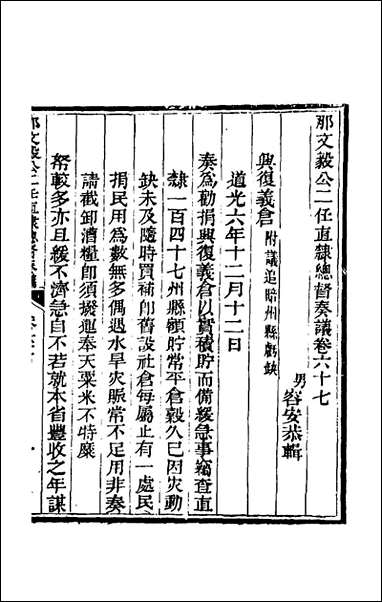 那文毅公二任直隸總督奏議卷六十七
男
容安恭輯
興復義倉附議追賠州縣虧缺
道光六年十二月十二日
奏爲勸捐興復義倉以實積貯而備緩急事竊查直
隸一百四十七州縣額貯常平倉穀久已因灾動
缺未及隨時買補卽舊設社倉每屬止有一處民
捐民用爲數無多偶遇水旱灾賑常不足用非奏
請截卸漕糧卽須撥運奉天粟米不特糜
帑較多亦且緩不濟急自不若就本省豐收之年謀
那文毅公二任直隸總督奏議